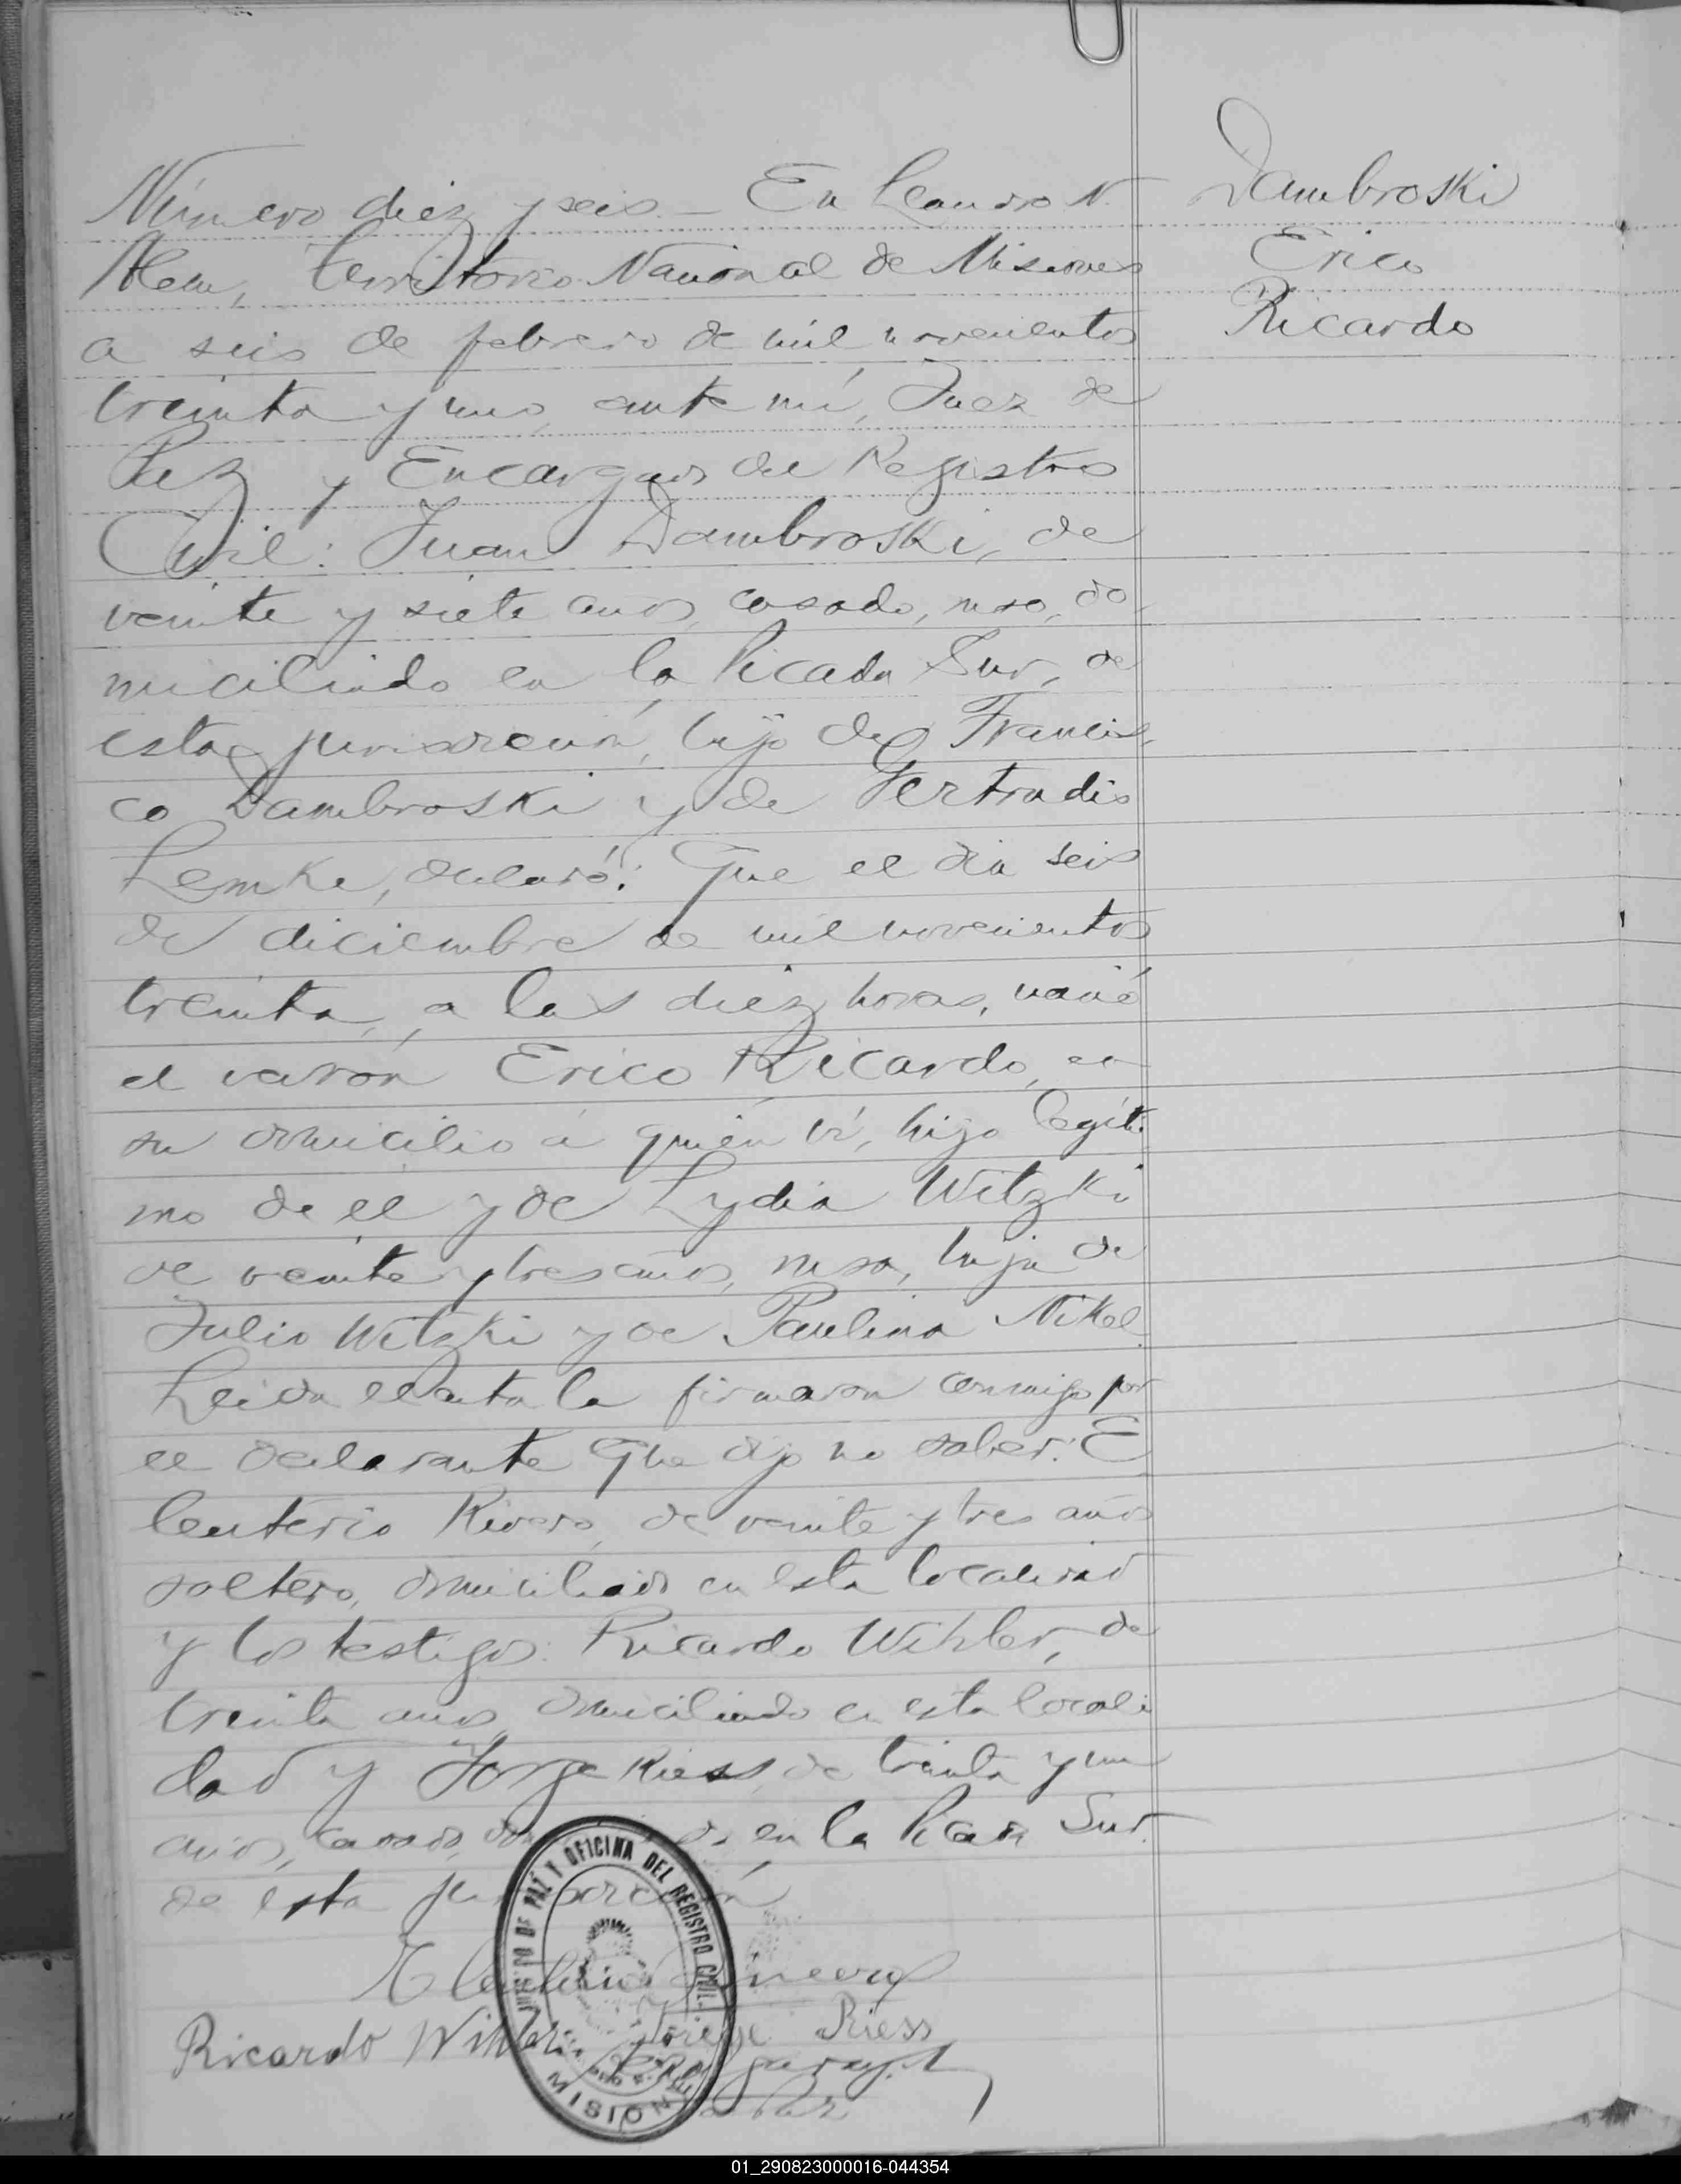 Número diez y seis. — En Leandro N.
Alem, Territorio Nacional de Misiones
a seis de febrero de mil novecientos
treinta y uno, ante mí, Juez de
Paz y Encargado del Registro
Civil: Juan Dambroski, de
veinte y siete años, casado, ruso, do-
miciliado en la Picada Sur, de
esta jurisdicción, hijo de Francis-
co Dambroski y de Gertrudis
Lemke, declaró: Que el día seis
de diciembre de mil novecientos
treinta, a las diez horas, nació
el varón Erico Ricardo, en
su domicilio á quién ví, hijo legíti-
mo de él y de Lydia Witzki
de veinte y tres años, rusa, hija de
Julio Witzki y de Paulina Nikel.
Leida el acta la firmaron conmigo por
el declarante que dijo no saber: E
leuterio Rivero, de veinte y tres años
soltero, domiciliado en esta localidad
y los testigos: Ricardo Wihler, de
treinta años, domiciliado en esta locali
dad y Jorge Riess, de treinta y un
años, casado, en la Picada Sur.
de esta jurisdicción
Ricardo Wihler Jorge Riess
Paz
JUZGADO DE PAZ Y OFICINA DEL REGISTRO CIVIL
MISIONES
Dambroski
Erico
Ricardo
01_290823000016-044354